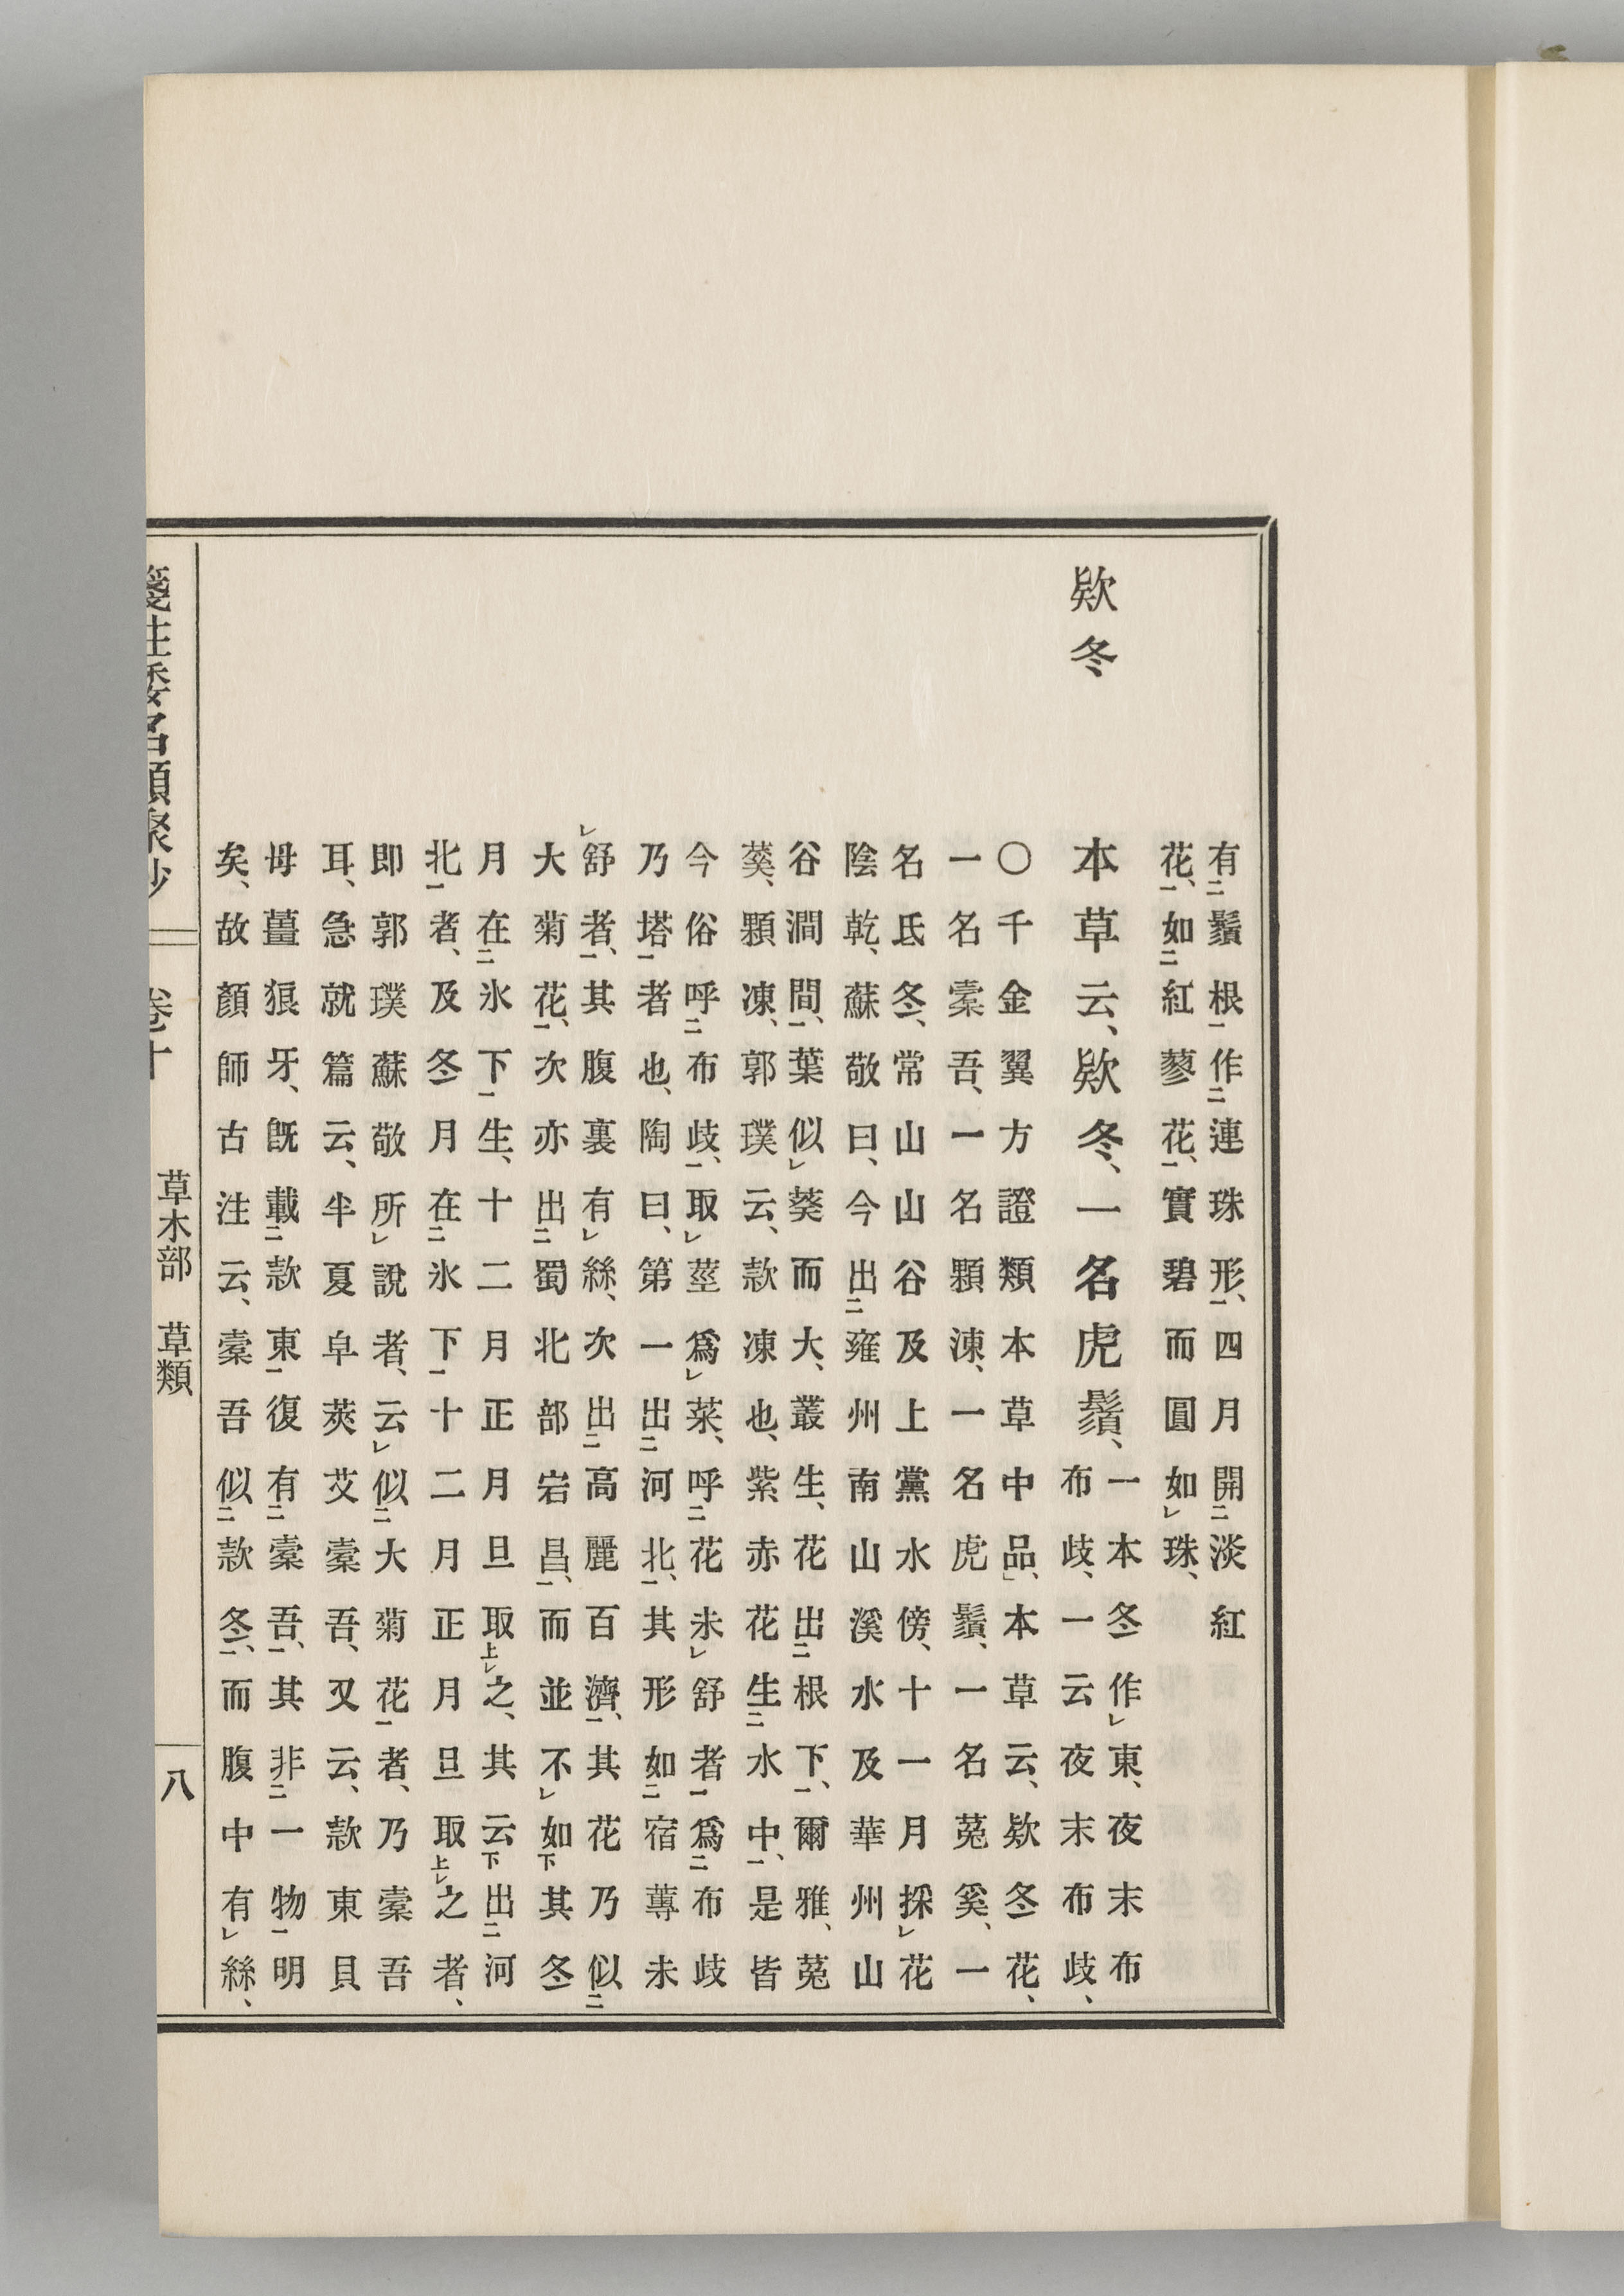 有鬚根作連珠形、四月開淡紅
花、如紅蓼花、實碧而圓如珠、
欵冬
本草云、欵冬、一名虎鬚、
一本冬作東、夜末布
布岐、一云夜末布岐、
〇千金翼方證類本草中品、本草云、欵冬花、
一名橐吾、一名顆涷、一名虎鬚、一名菟奚、一
名氐冬、常山山谷及上黨水傍、十一月採花
陰乾、蘇敬曰、今出雍州南山溪水及華州山
谷澗間、葉似葵而大、叢生、花出根下、爾雅、菟
葵、顆凍、郭璞云、款凍也、紫赤花生水中、是皆
今俗呼布岐、取莖爲菜、呼花未舒者爲布岐
乃塔者也、陶曰、第一出河北、其形如宿蓴未
舒者、其腹裏有絲、次出高麗百濟、其花乃似
大菊花、次亦出蜀北部宕昌、而並不如其冬
月在氷下生、十二月正月旦取之、其云出河
北者、及冬月在氷下十二月正月旦取之者、
即郭璞蘇敬所說者、云似大菊花者、乃橐吾
耳、急就篇云、半夏皁莢艾橐吾、又云、款東貝
母薑狼牙、旣載款東復有橐吾、其非一物明
矣、故顏師古注云、橐吾似款冬、而腹中有絲、
箋注倭名類聚抄 卷十 草木部 草類 八